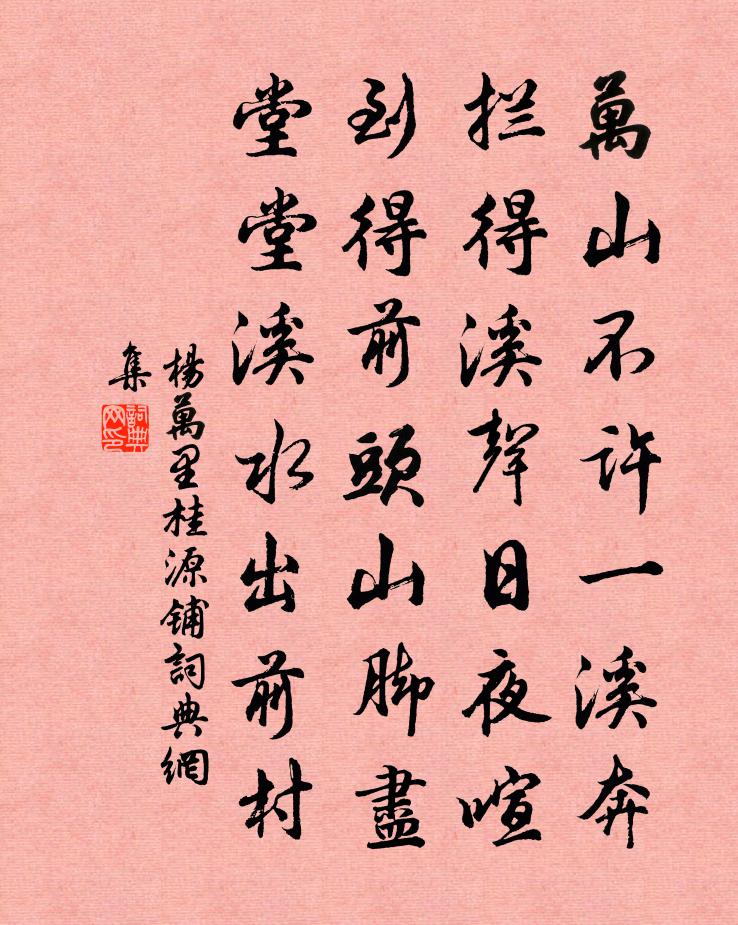 萬山不许一溪奔
拦得溪聲日夜喧
到得前頭山脚盡
堂堂溪水出前村
楊萬里桂源铺詞典網
集
詞典网印